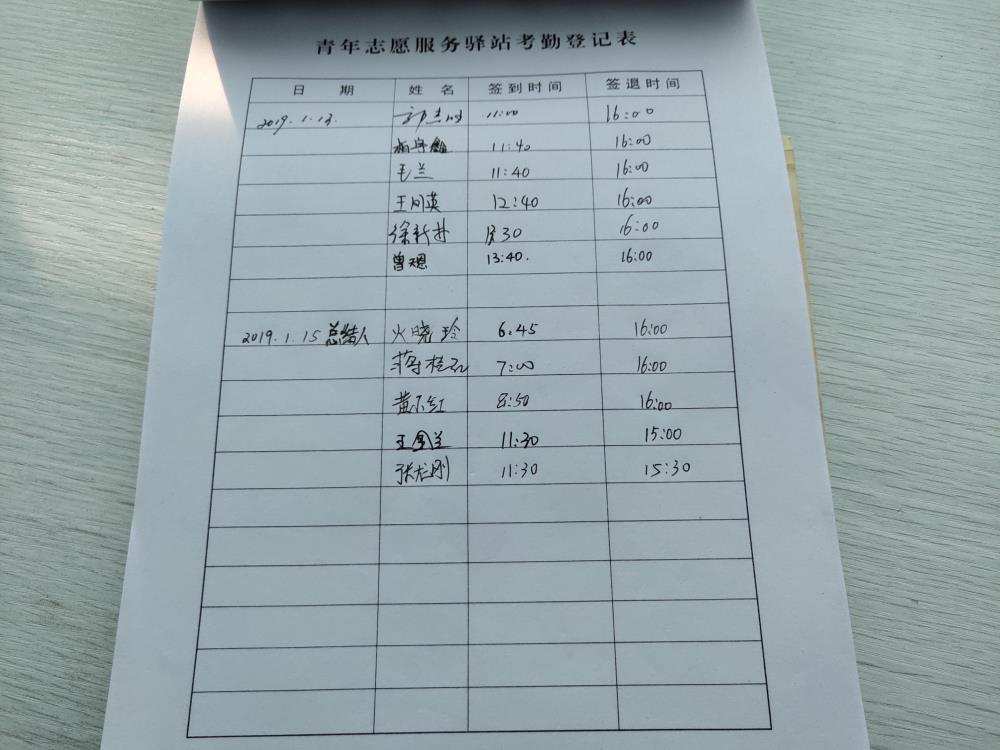 青年志愿服务驿站考勤登记表
日 期 姓 名 签到时间 签退时间
2019.1.13. 11:00 16:00
11:40 16:00
毛兰 11:40 16:00
王同英 12:40 16:00
徐新 30 16:00
曾 13:40. 16:00
2019.1.15 总结人 火晓玲 6:45 16:00
蒋桂 7:00 16:00
黄小红 8:50 16:00
王金兰 11:30 15:00
张龙刚 11:30 15:30